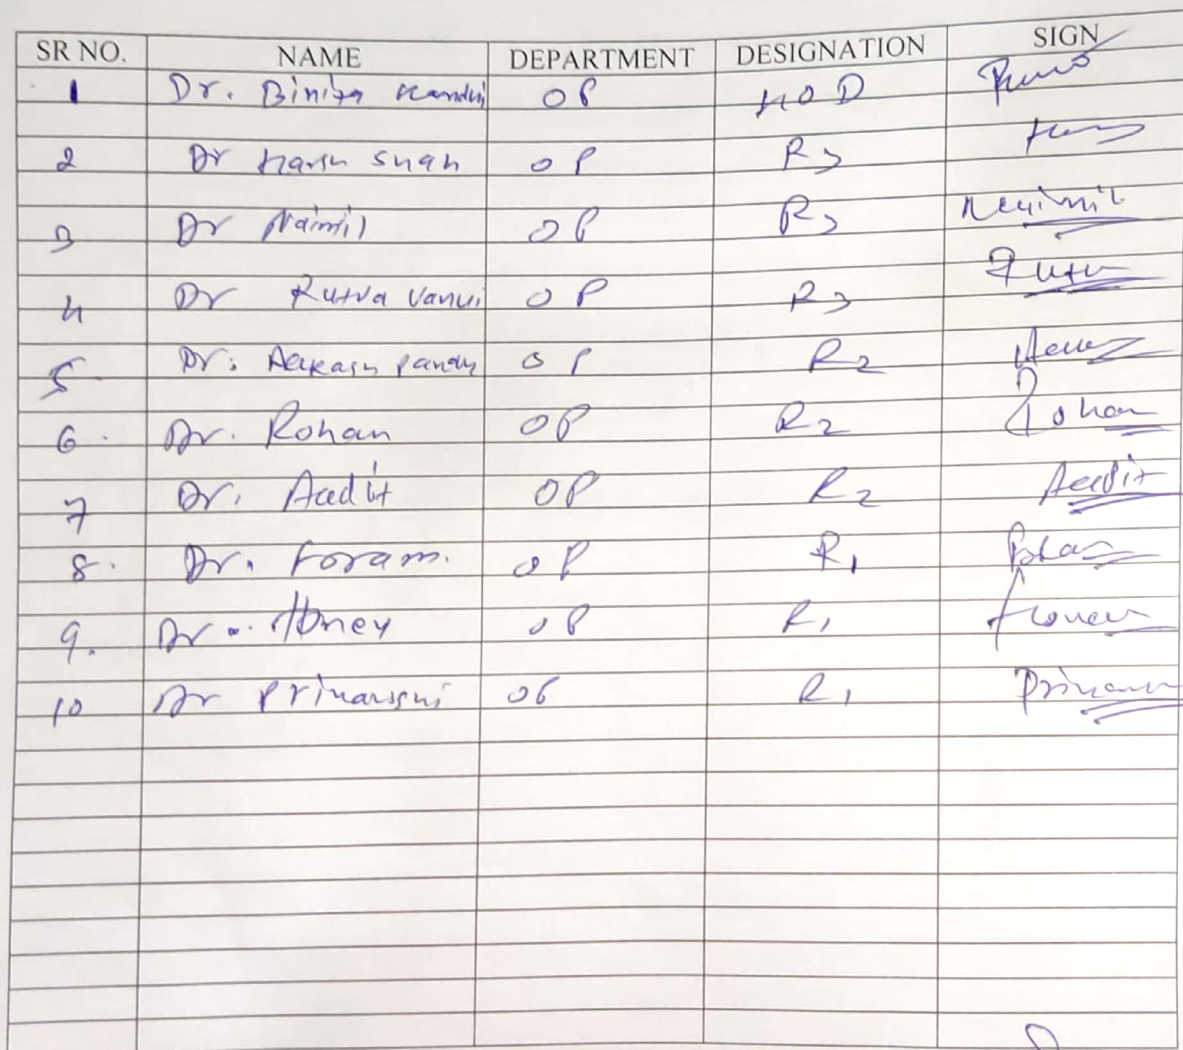 SR NO. NAME DEPARTMENT DESIGNATION SIGN
1 Dr. Binita OP HOD
2 Dr Harsh Shah OP R3
3 Dr Naimil OP R3 Naimil
4 Dr Rutva OP R3 Rutu
5. Dr. Aakash OP R2
6. Dr. Rohan OP R2 Rohan
7 Dr. Aadit OP R2 Aadit
8. Dr. Foram. OP R1
9. Dr. Honey OP R1
10 Dr OP R1